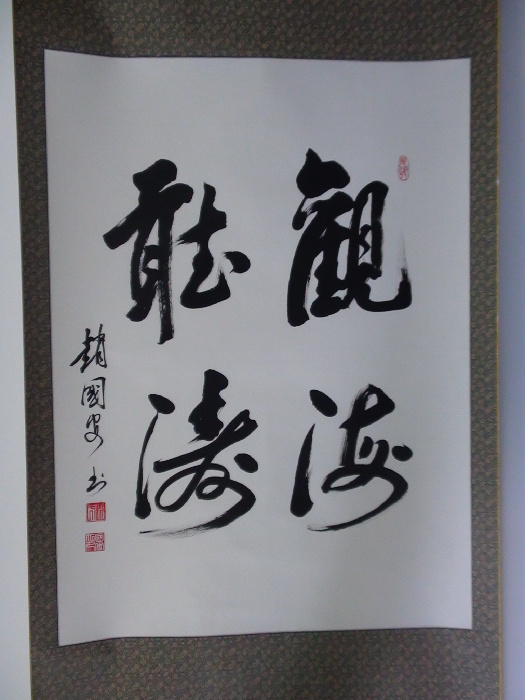 觀海
聽濤
趙國安书